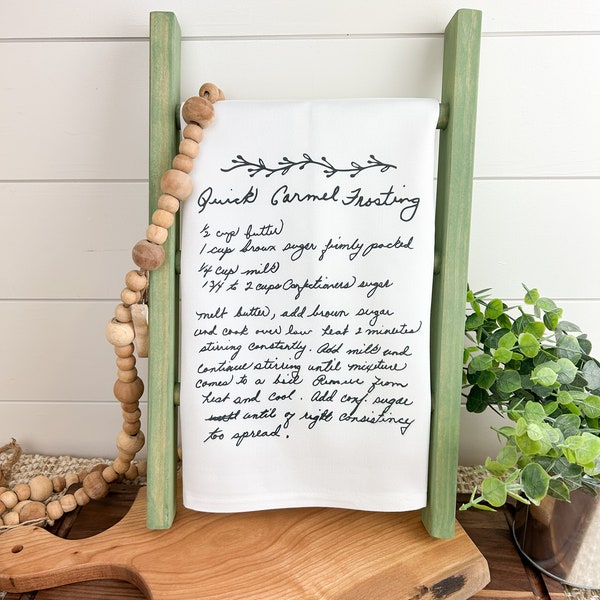 Quick Carmel Frosting
½ cup butter
1 cup brown sugar firmly packed
¼ cup milk
1 ¾ to 2 cups Confectioners sugar
melt butter, add brown sugar
and cook over low heat 2 minutes
stirring constantly. Add milk and
continue stirring until mixture
comes to a boil Remove from
heat and cool. Add conf. sugar
until of right consistincy
too spread.